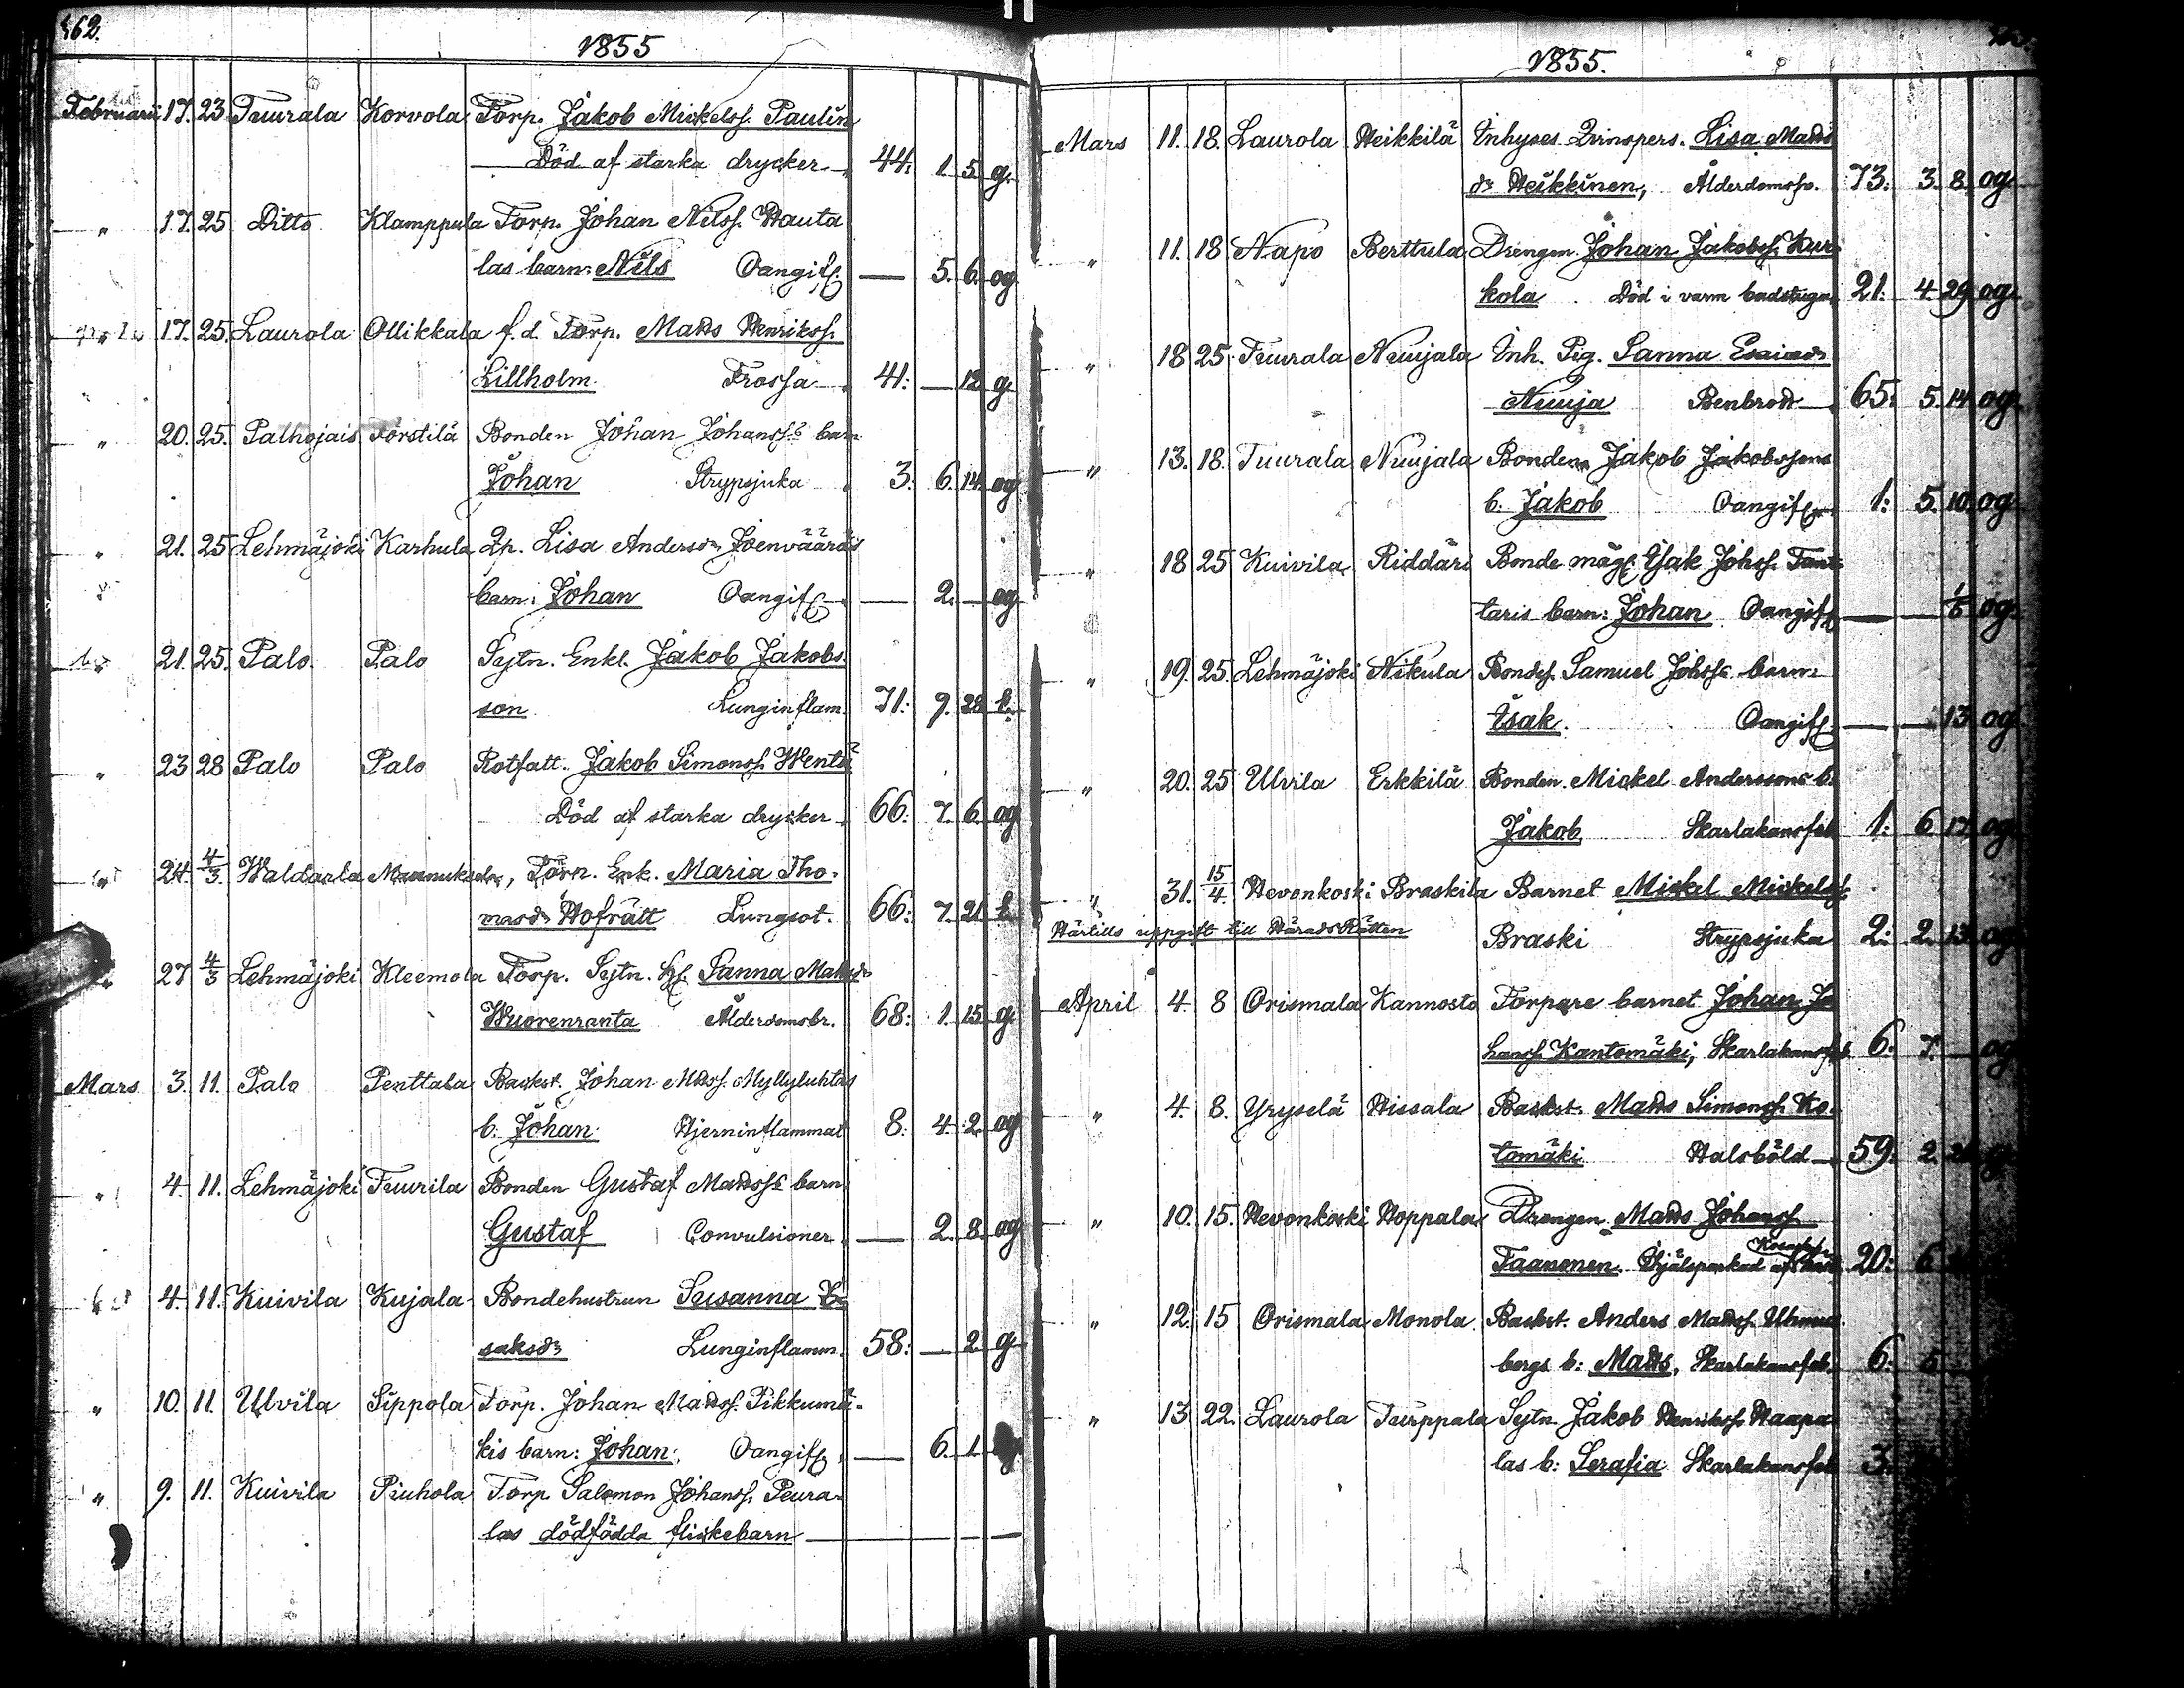 462.
1855
Februarii 17. 23. Tuurala Korvola Torp. Jakob Mickelss. Paulin
Död af starka drycker 44. 1. 5. g.
" 17. 25 Ditto Klamppula Torp. Johan Nilss. Hauta
las barn: Nils Oangif. — 5. 6. og
" 17. 25. Laurola Ollikkala f. d. Torp. Matts Henrikss.
Lillholm. Frossa 41: — 12 g
" 20. 25. Palhojais Förstilä Bonden Johan Johanss:s barn
Johan Strypsjuka 3: 6. 14. og
" 21. 25 Lehmäjoki Karhula Qp. Lisa Andersdr Joenvääräs
barn: Johan Oangif. — 2. — og
" 21. 25. Palo. Palo Sytn. Enkl. Jakob Jakobs
son Lunginflam. 71: 9. 28
" 23 28 Palo Palo Rotfatt. Jakob Simonss. Wentä
Död af starka drycker 66: 7. 6. og
" 24. 4/3. Waldarla Torp. Enk. Maria Tho-
masdr Hofrätt Lungsot. 66: 7. 21.
" 27 4/3 Lehmäjoki Kleemola Torp. Sytn. Sanna Matsdr
Wuorenranta Ålderdomsbr. 68: 1. 15. g
Mars 3. 11. Palo Penttala Backst. Johan Mattss. Myllyluhtas
b. Johan Hjerninflammat 8: 4. 2. og
" 4. 11. Lehmäjoki Tuurila Bonden Gustaf Mattss:s barn
Gustaf Convulsioner — 2. 8. og
4. 11. Kuivila Kujala Bondehustrun Susanna I-
saksdr Lunginflamm. 58: — 2. g
" 10. 11. Ulvila Sippola Torp. Johan Mattss. Pikkumä-
kis barn: Johan: Oangif. — 6. 1.
" 9. 11. Kuivila Piuhola Torp. Salomon Johanss. Peura-
las dödfödda flickebarn —
1855.
Mars 11. 18. Laurola Heikkilä Inhyses Qvinspers. Lisa Matts
dr Heikkinen, Ålderdomsbr. 73: 3. 8. og
" 11. 18 Napo Berttula Drengen Johan Jakobss. Kur-
kola Död i varm badstuga 21: 4. 29. og
" 18 25. Tuurala Nuujala Inh. Pig. Sanna Esaiaedr
Nuuja Benbrott 65: 5. 14. og
" 13. 18. Tuurala Nuujala Bonden Jakob Jakobssons
b. Jakob Oangif. 1: 5. 10. og
" 18 25 Kuivila Riddäri Bonde måg. Isak Johss. Tant-
taris barn: Johan Oangif. — og
" 19. 25. Lehmäjoki Nikula Bondes. Samuel Johss:s barn
Isak. Oangif. — — 13. og
" 20. 25 Ulvila Erkkilä Bonden Mickel Anderssons b.
Jakob Skarlakansfeb 1: 6. 17. og
" 31. 15/4. Hevonkoski Braskila Barnet Mickel Mickelss.
Härtills uppgift till HäradsRätten
Braski Strypsjuka 2: 2. 13. og
April 4. 8 Orismala Kannosto Torpare barnet Johan Jo
hanss. Kantomäki, Skarlakansfeb 6: 7. — og
" 4. 8. Yryselä Hissala Backst. Matts Simonss. Ko-
tomäki Halsböld 59: 2.
" 10. 15. Hevonkoski Hoppala Drengen Matts Johanss.
Taanonen. Ihjälsparkad af 20: 6
" 12. 15 Orismala Monola. Backst. Anders Mattss.
bergs b: Matts, Skarlakansfeb. 6: 5
" 13 22. Laurola Turppala Sytn. Jakob Henrikss. Haapa
las b: Serafia Skarlakansfeb 3.